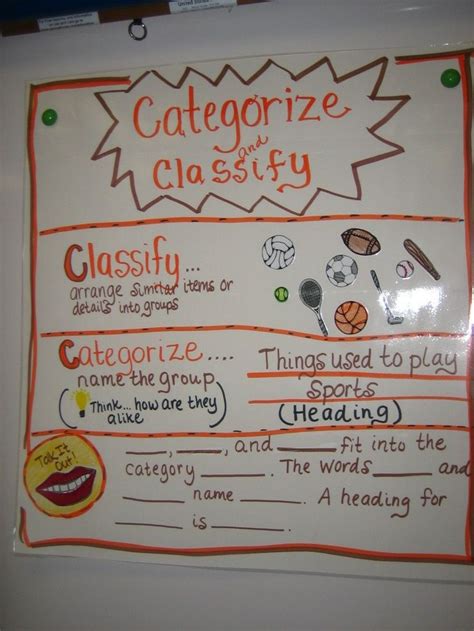 United States
Categorize
and
Classify
Classify...
arrange similar items or
details into groups
Categorize....
name the group
(Think... how are they
alike)
Things used to play
Sports
(Heading)
Talk It
Out!
___, ___, and ___ fit into the
category ____. The words ___ and
____ name ____. A heading for
____ is ____.